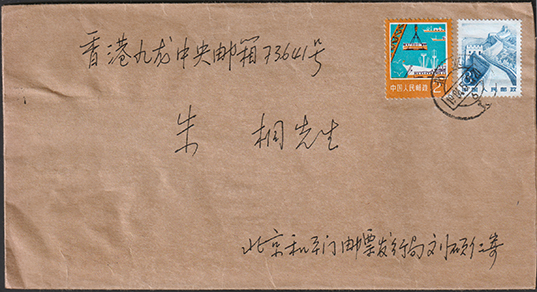 香港九龙中央邮箱73641号
中国人民邮政 2
朱桐先生
北京和平门邮票发行局刘硕仁寄